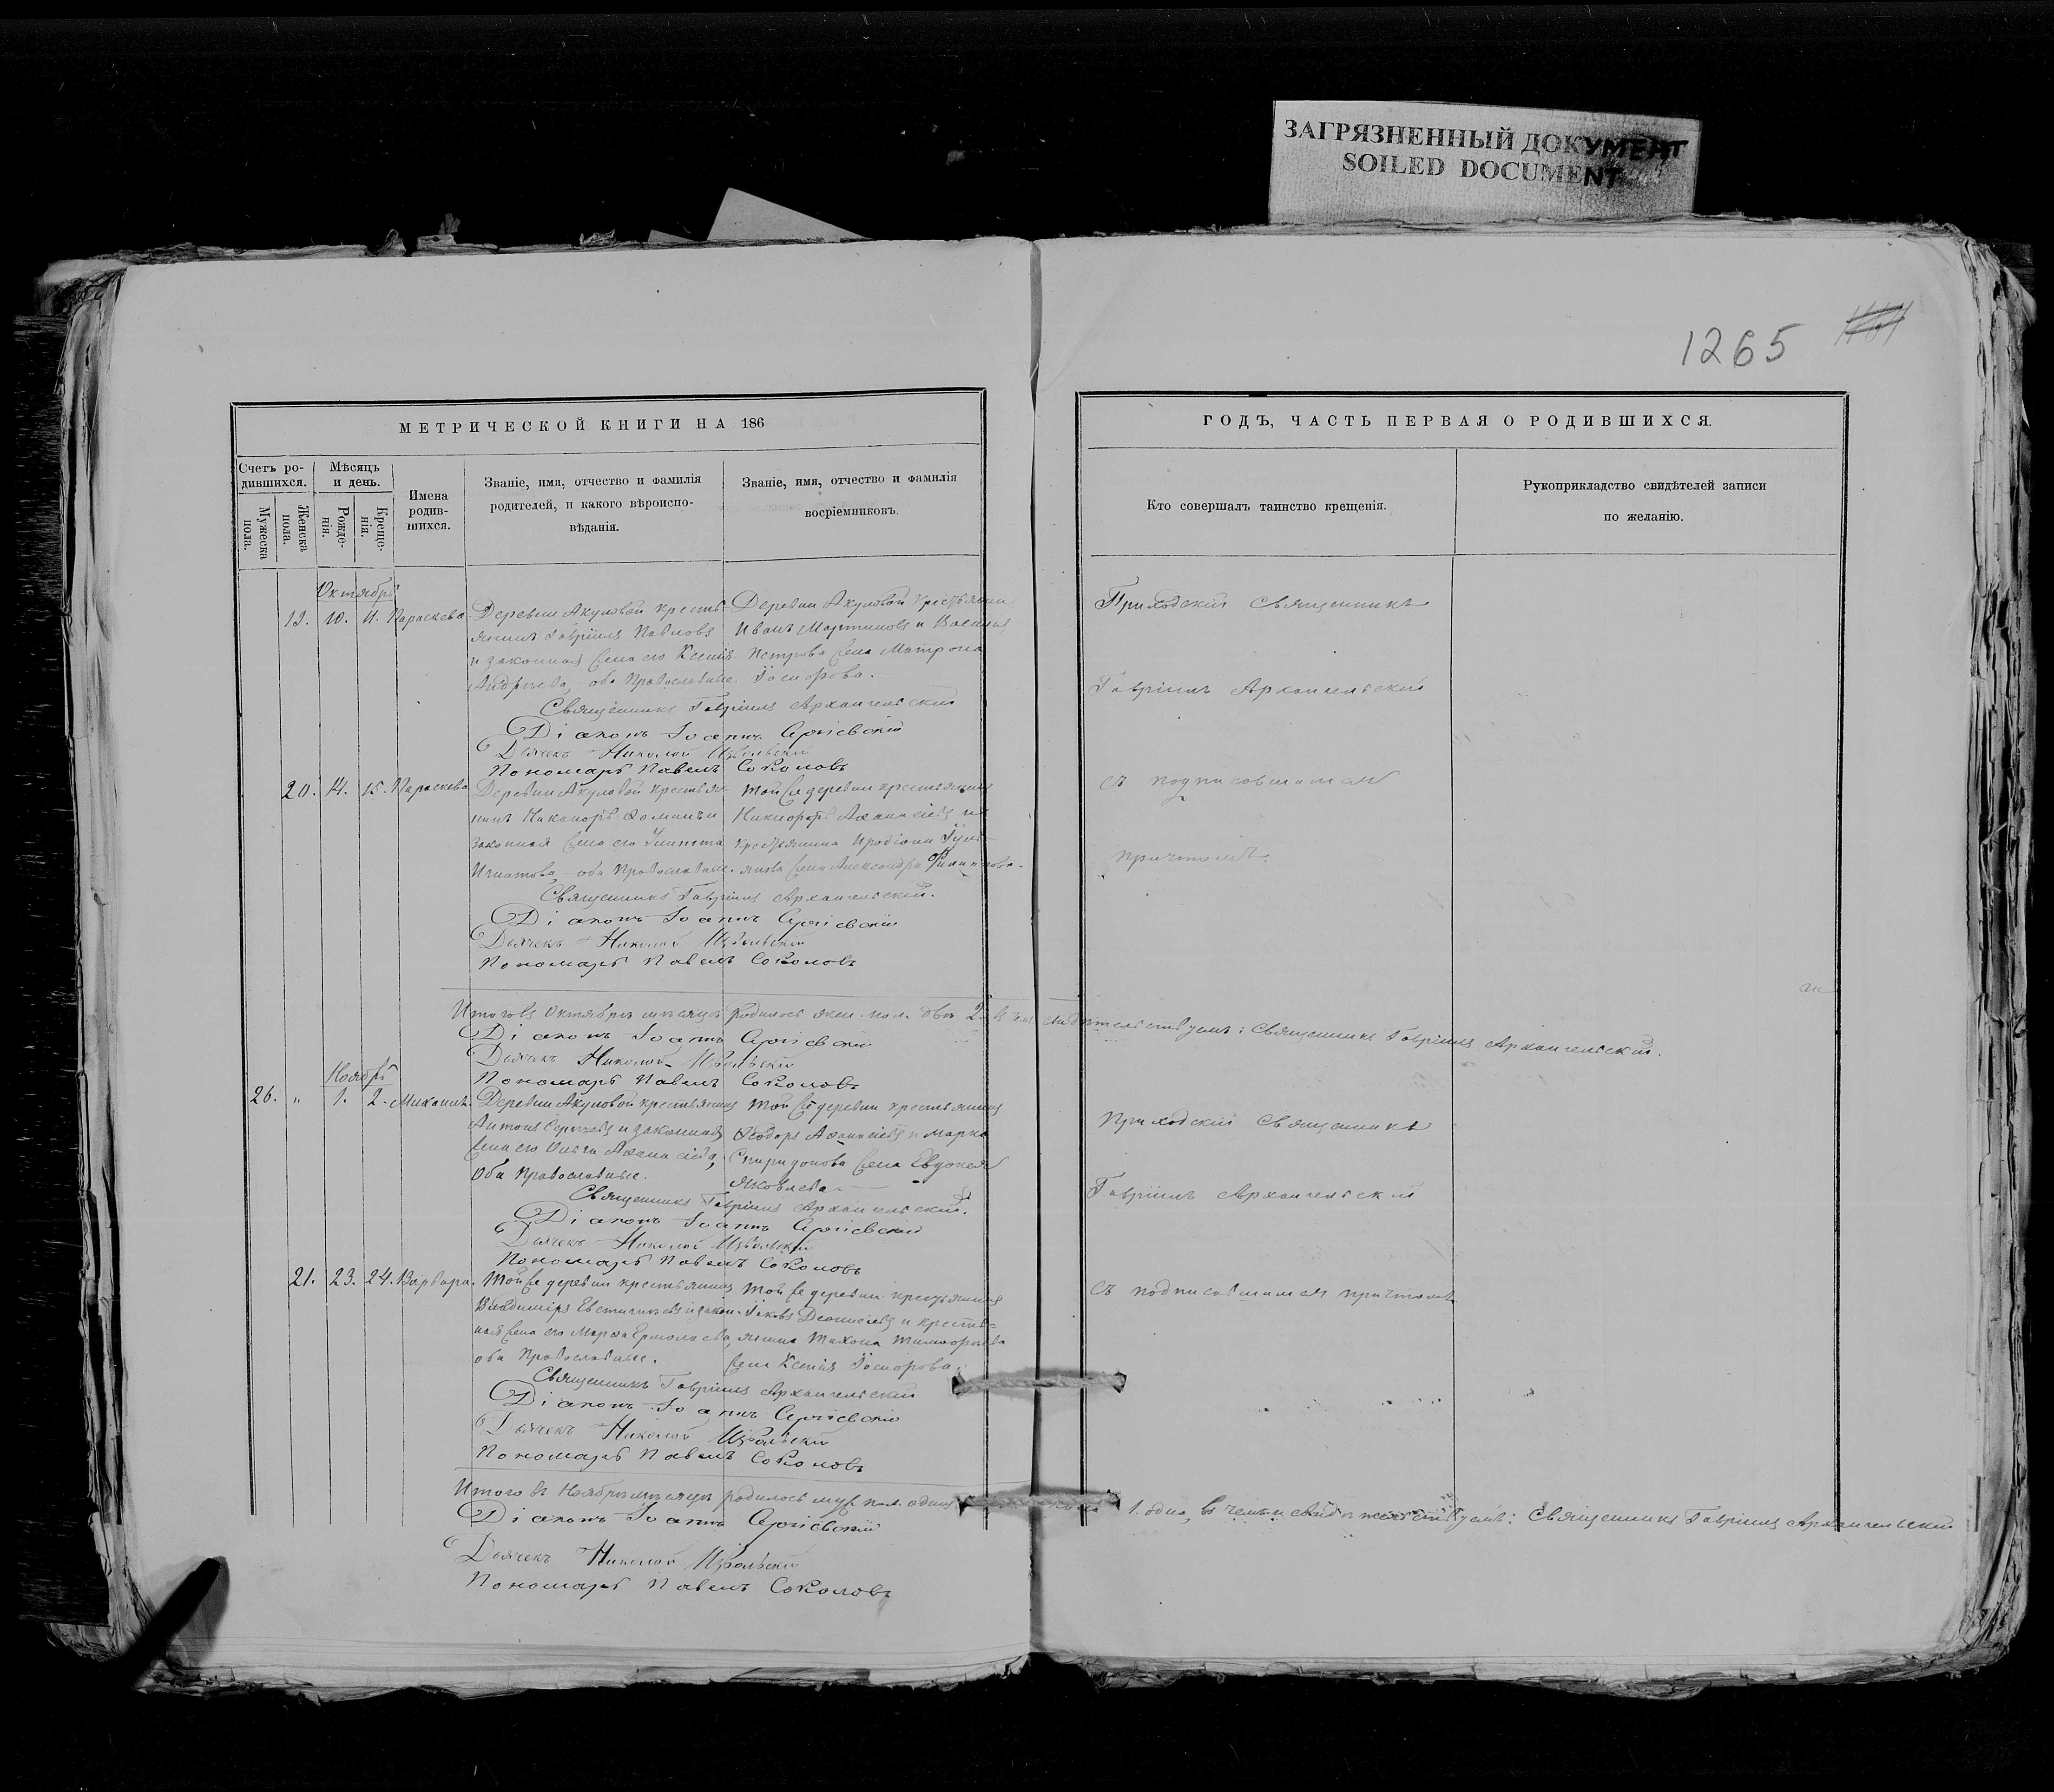 ЗАГРЯЗНЕННЫЙ ДОКУМЕНТ
SOILED DOCUMENT
1265
МЕТРИЧЕСКОЙ КНИГИ НА 186
Счетъ родившихся.
Мужеска пола.
Женска пола.
Мѣсяцъ и день.
Рожденія.
Крещенія.
Имена родившихся.
Званіе, имя, отчество и фамилія
родителей, и какого вѣроиспо-
вѣданія.
Званіе, имя, отчество и фамилія
воспріемниковъ.
ГОДЪ, ЧАСТЬ ПЕРВАЯ О РОДИВШИХСЯ.
Кто совершалъ таинство крещенія.
Рукоприкладство свидѣтелей записи
по желанію.
Октябрь
19. 10. 11. Параскева
Деревни Акуловой кресть-
янинъ Гавріилъ Павловъ
и законная жена его Ксенія
Андреева, оба Православные.
Деревни Акуловой крестьянинъ
Иванъ Мартиновъ и Василія
Петрова жена Матрона
Священникъ Гавріилъ Архангельскій
Діаконъ Іоаннъ Сергіевскій
Дьячекъ Николай
Пономарь Павелъ Соколовъ
Приходскій Священникъ
Гавріилъ Архангельскій
съ подписавшимся
причтомъ.
20. 14. 15. Параскева
Деревни Акуловой крестья-
нинъ Никаноръ Фоминъ и
законная жена его
Игнатова, оба Православные.
Той же деревни крестьянинъ
Никифоръ Афанасіевъ и
крестьянина Иродіона
жена Александра Филиппова.
Священникъ Гавріилъ Архангельскій.
Діаконъ Іоаннъ Сергіевскій
Дьячекъ Николай
Пономарь Павелъ Соколовъ
Итого въ Октябрѣ мѣсяцѣ родилось жен. пол. двѣ 2. въ чемъ свидѣтельствуемъ: Священникъ Гавріилъ Архангельскій.
Діаконъ Іоаннъ Сергіевскій
Дьячекъ Николай
Пономарь Павелъ Соколовъ
Ноябрь
26. " 1. 2. Михаилъ.
Деревни Акуловой крестьянинъ
Антонъ Сергѣевъ и законная
жена его Ольга Афанасіева,
Оба Православные.
Той же деревни крестьянинъ
Ѳеодоръ Афанасіевъ и Марка
Спиридонова жена Евдокея
Яковлева
Священникъ Гавріилъ Архангельскій.
Діаконъ Іоаннъ Сергіевскій
Дьячекъ Николай
Пономарь Павелъ Соколовъ
Приходскій Священникъ
Гавріилъ Архангельскій
съ подписавшимся причтомъ
21. 23. 24. Варвара.
Той же деревни крестьянинъ
Владиміръ Евстигнѣевъ и закон-
ная жена его Марѳа Ермолаева,
оба Православные.
Той же деревни крестьянинъ
Іаковъ Деонисіевъ и кресть-
янина Тихона
жена Ксенія
Священникъ Гавріилъ Архангельскій
Діаконъ Іоаннъ Сергіевскій
Дьячекъ Николай
Пономарь Павелъ Соколовъ
Итого въ Ноябрѣ мѣсяцѣ родилось муж. пол. одинъ 1. одна, въ чемъ и свидѣтельствуемъ: Священникъ Гавріилъ Архангельскій
Діаконъ Іоаннъ Сергіевскій
Дьячекъ Николай
Пономарь Павелъ Соколовъ